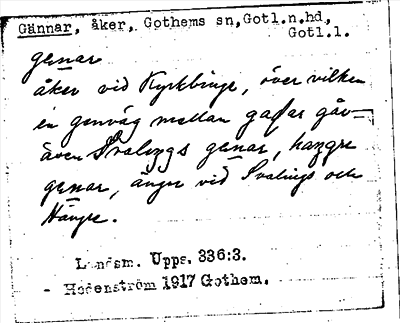 Gännar, åker, Gothems sn, Gotl.n.hd,
Gotl.l.
genar
åker vid Kyrkbinge, över vilken
en genväg mellan gafar går
även Svalings genar, hangre
genar, ängar vid Svalings och
Hångre.
Landsm. Upps. 336:3.
- Hedenström 1917 Gothem.